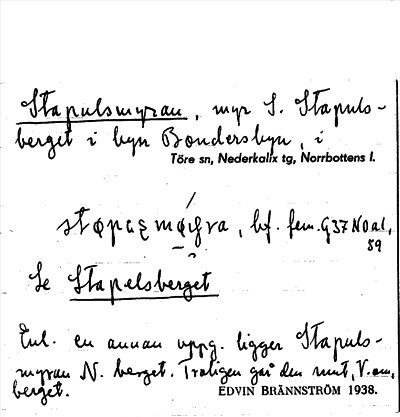 Stapulsmyran, myr S. Stapuls-
berget i byn Bondersbyn, i
Töre sn, Nederkalix tg, Norrbottens l.
bf. fem. G37 NO al,
59
Se Stapelsberget
Enl. en annan uppg. ligger Stapuls-
myran N. berget. Troligen går den runt, V. om,
berget.
EDVIN BRÄNNSTRÖM 1938.